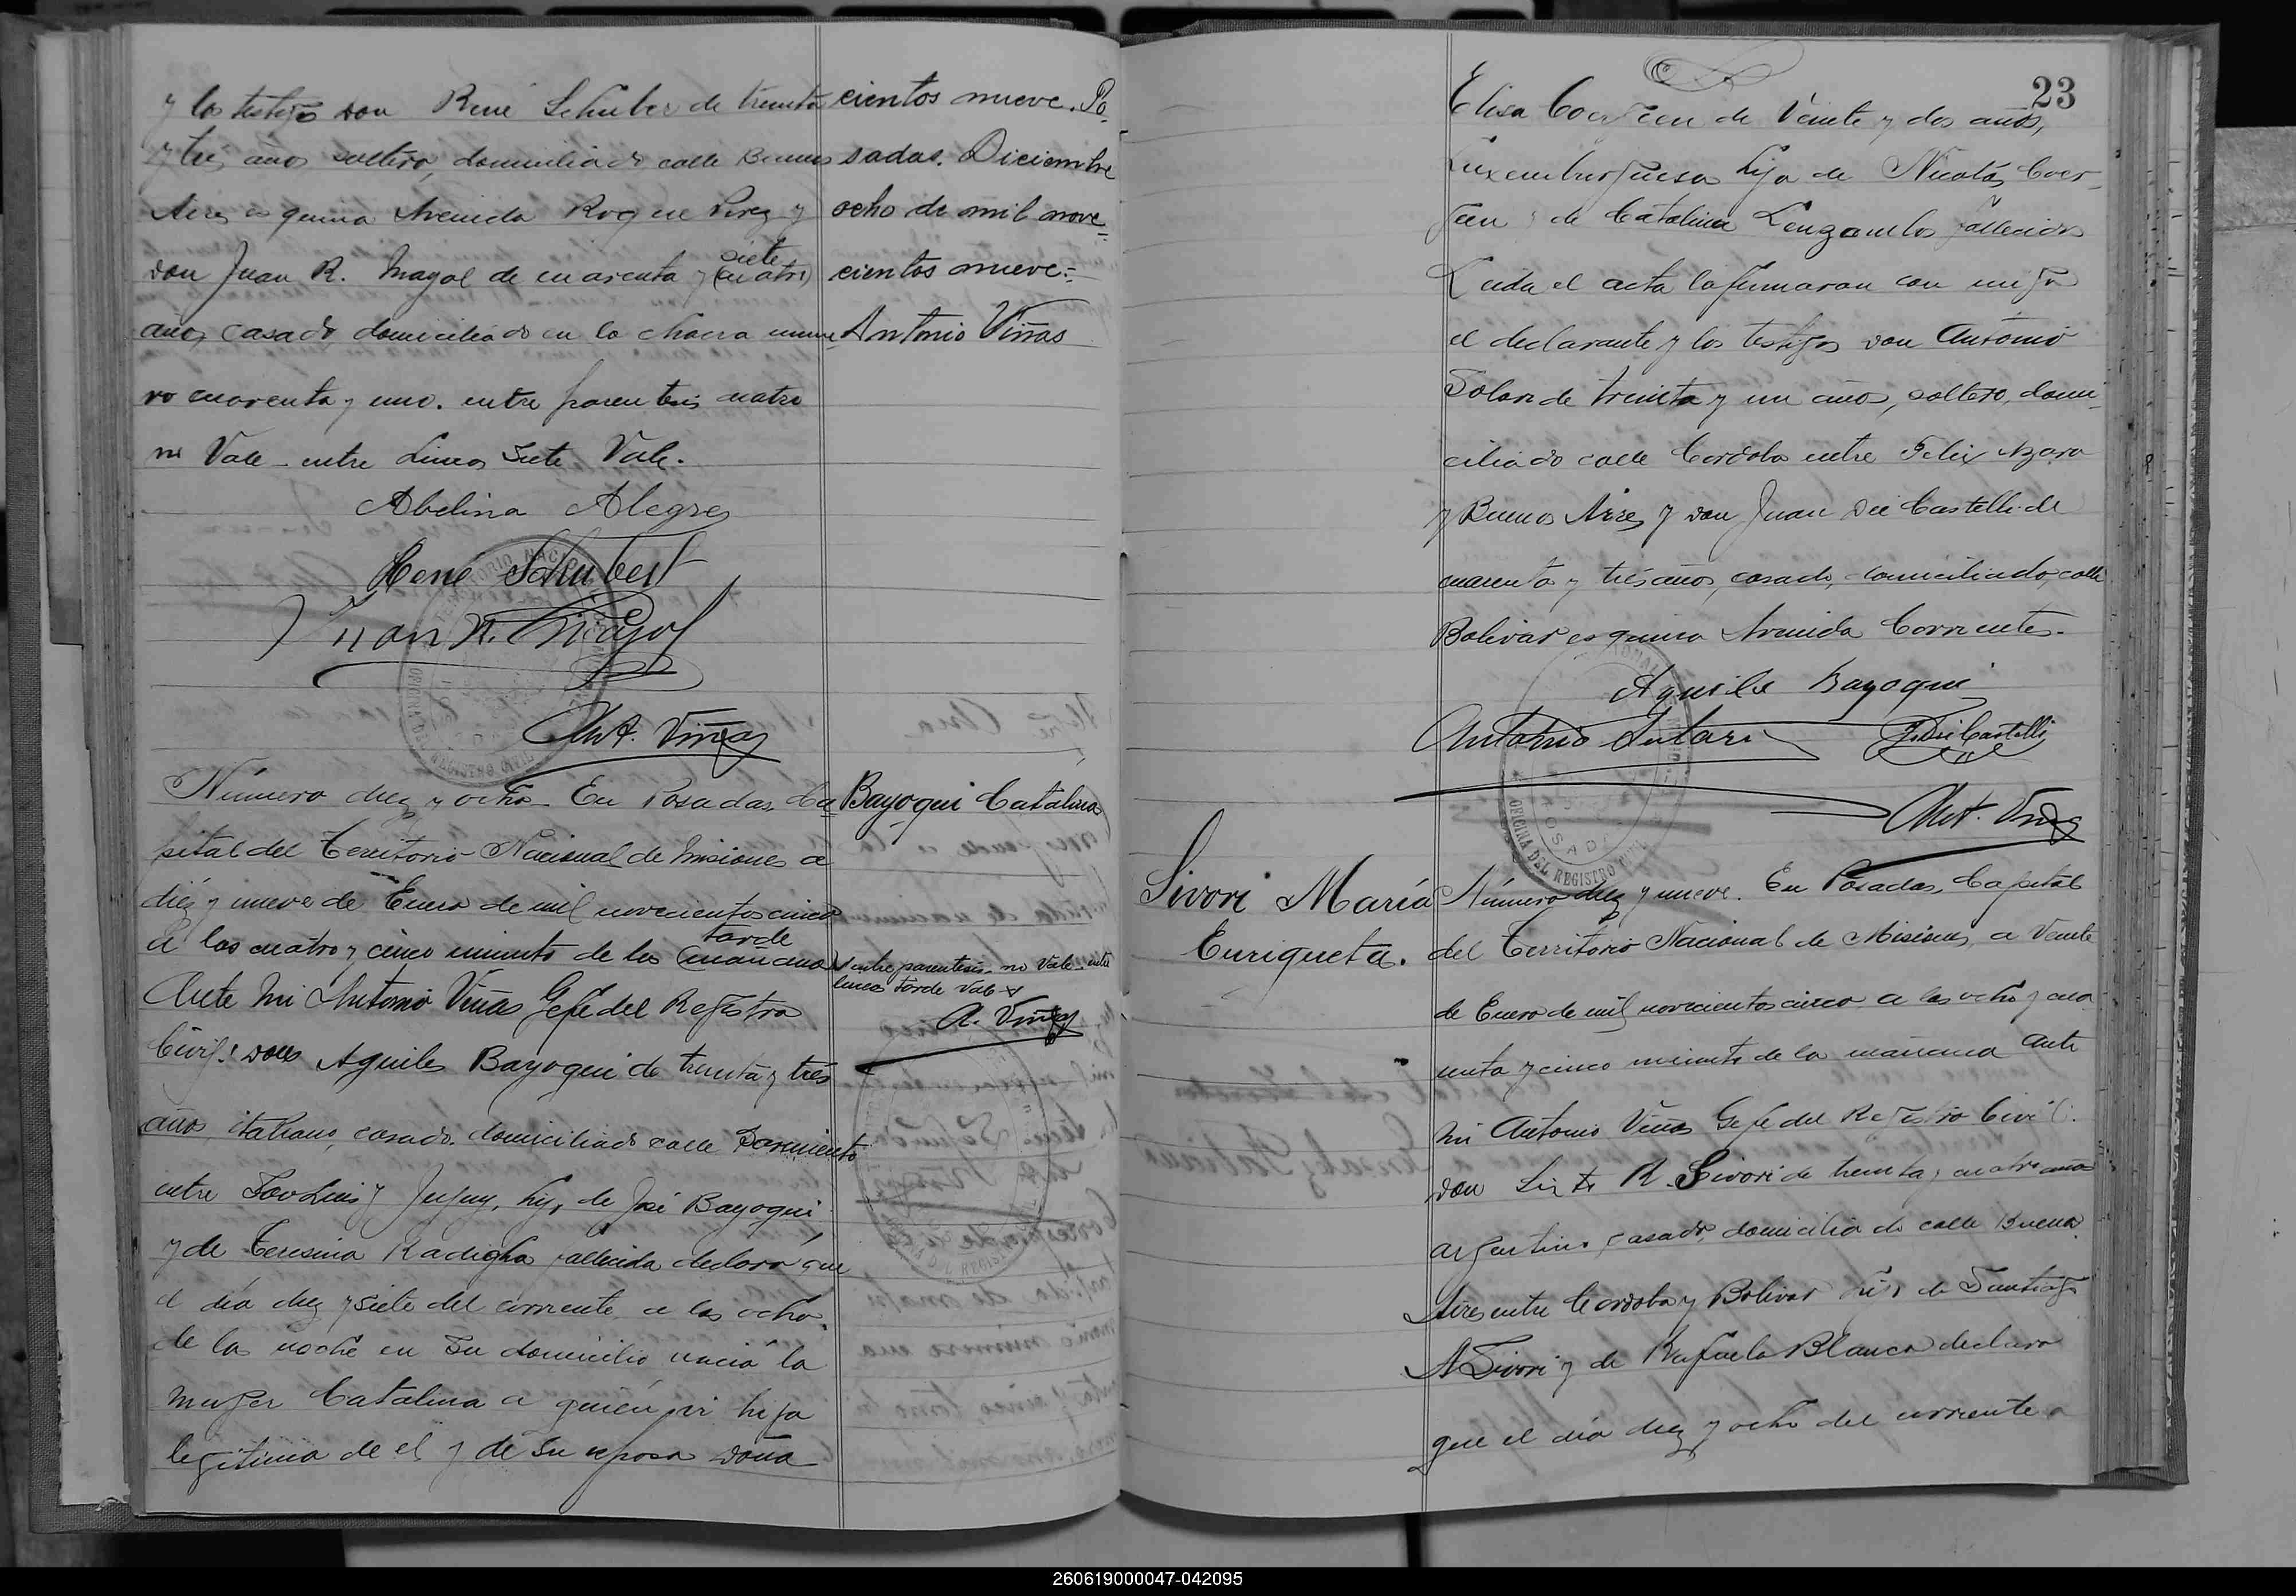 y los testigos don René Schuber de treinta
y tres años soltero, domiciliado calle Buenos
Aires esquina Avenida Roque Perez y
siete
don Juan R. Mayol de cuarenta y (cuatro)
años, casado domiciliado en la chacra nume
ro cuarenta y uno. entre parentesis cuatro
no Vale - entre Lineas Siete Vale.
cientos nueve. Po
sadas. Diciembre
ocho de mil nove
cientos nueve=
Antonio Viñas
Abelina Alegre
René Schubert
Juan R. Mayol
Ant. Viñas
Número diez y ocho. En Posadas, Ca
pital del Territorio Nacional de Misiones a
diez y nueve de Enero de mil novecientos cinco
tarde
a las cuatro y cinco minutos de la (mañana)
Ante mi Antonio Viñas Gefe del Registro
Civil: don Aquiles Bayoqui de treinta y tres
años, italiano, casado. domiciliado calle Sarmiento
entre San Luis y Jujuy, hijo de José Bayoqui
y de Teresina Radigha fallecida declaró que
el día diez y siete del corriente a las ocho
de la noche en su domicilio nació la
mujer Catalina a quién vi hija
legitima de el y de su esposa doña
Bayoqui Catalina
entre parentesis. no Vale. entre
lineas tarde Vale
A. Viñas
23
Elisa de veinte y dos años,
Luxemburguesa hija de Nicolás
de Catalina fallecidos
Leida el acta la firmaron con migo
el declarante y los testigos don Antonio
Solari de treinta y un años, soltero, domi
ciliado calle Cordoba entre Felix Azara
y Buenos Aires y don Juan Dei Castelli de
cuarenta y tres años, casado, domiciliado, calle
Bolivar esquina Avenida Corrientes.
Aquile Bayoqui
Antonio Solari J. Dei Castelli
Ant. Viñas
Sivori María
Enriqueta.
Número diez y nueve. En Posadas, Capital
del Territorio Nacional de Misiones, a veinte
de Enero de mil novecientos cinco a las ocho y cua
renta y cinco minutos de la mañana Ante
mi Antonio Viñas Gefe del Registro Civil:
don Sixto R. Sivori de treinta y cuatro años
argentino, casado, domiciliado calle Buenos
Aires entre Cordoba y Bolivar hijo de Santiago
A Sivori y de Rafaela Blanco declaro
que el día diez y ocho del corriente a
OFICINA DEL REGISTRO CIVIL
POSADAS
260619000047-042095